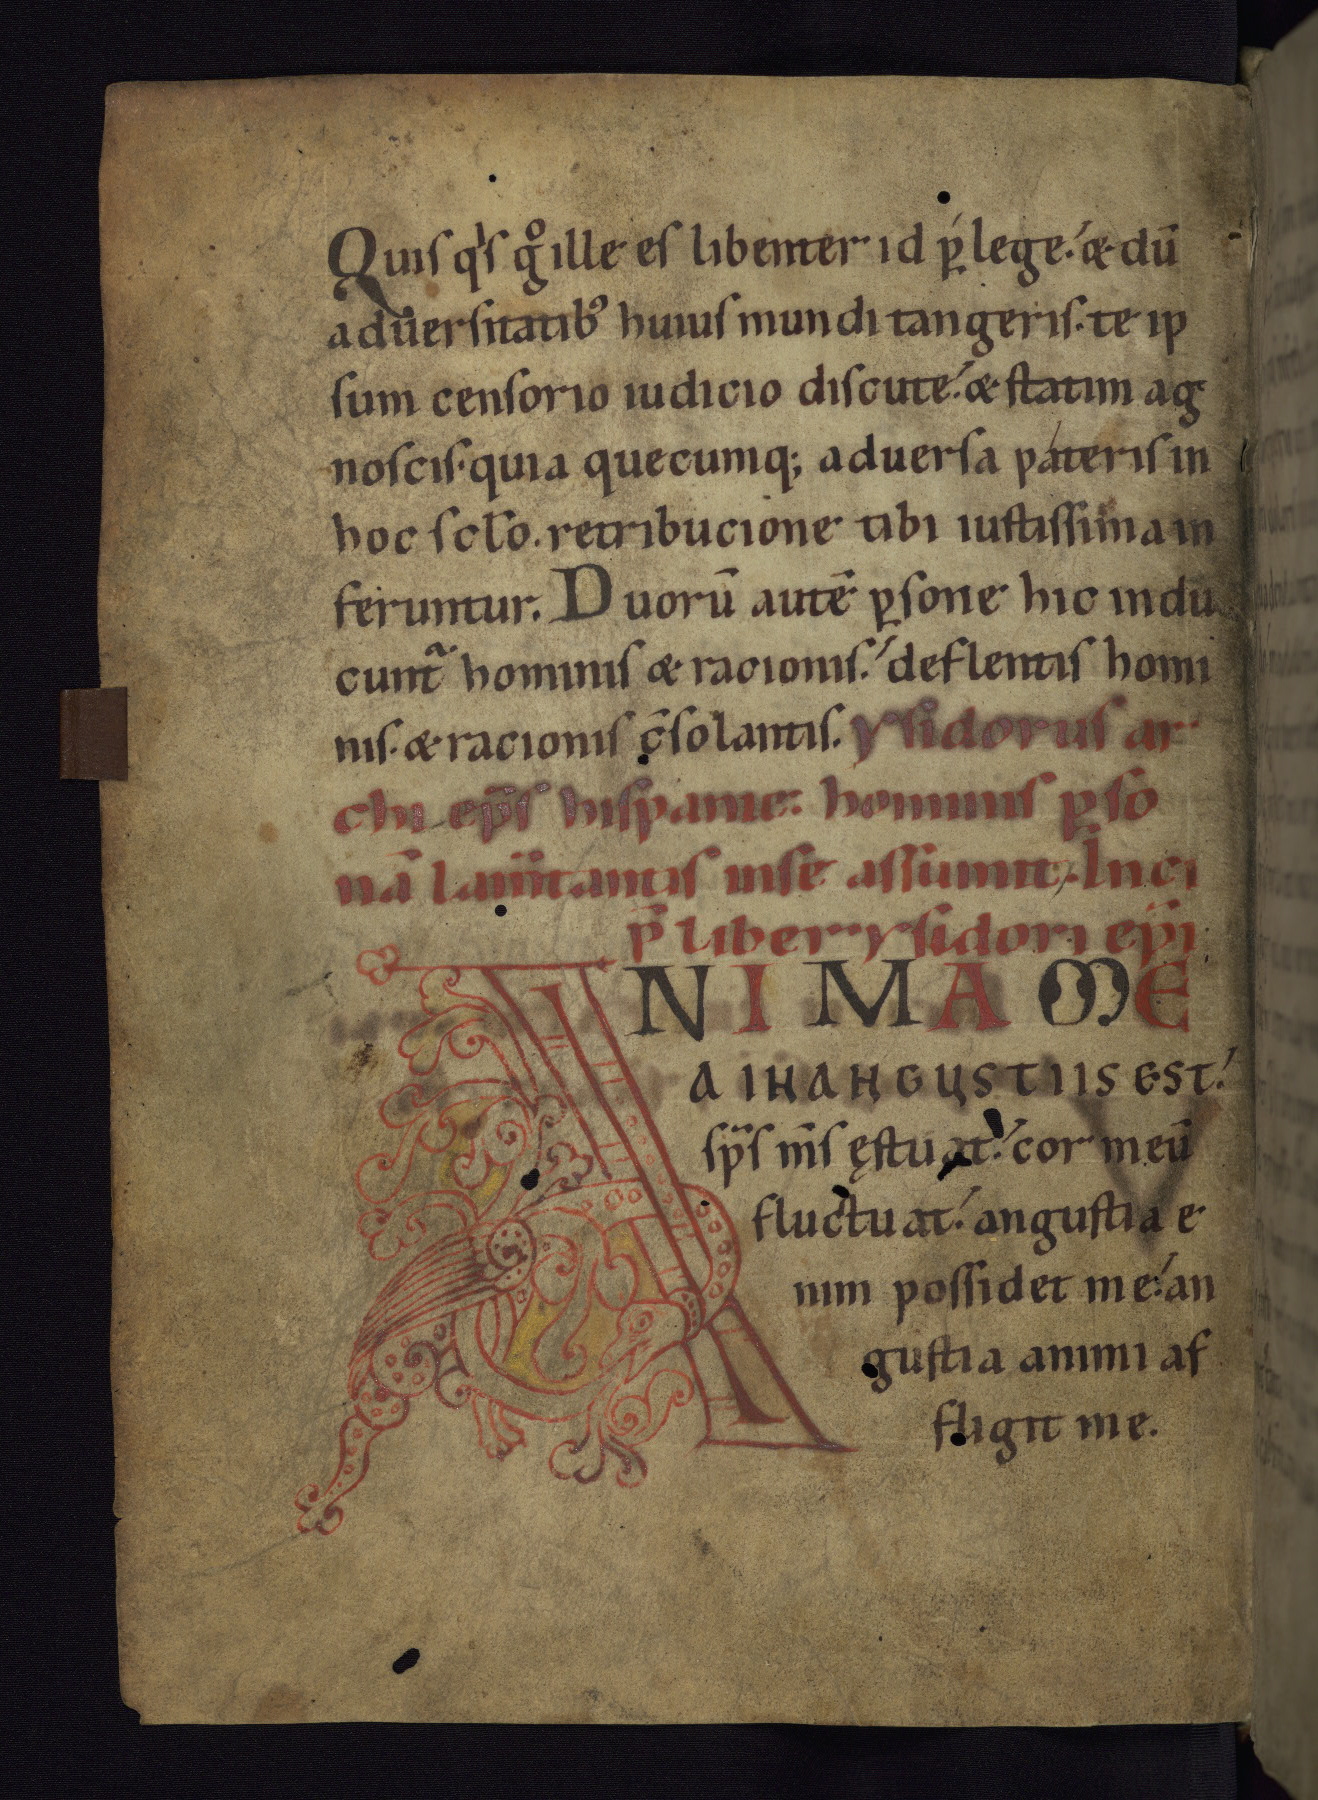 Quisq's gͦ ille es libenter id p̱lege. & dū
aduersitatibꝰ huius mundi tangeris. te ip
sum censorio iudicio discute. & statim ag
noscis. quia quecumq; aduersa pateris in
hoc sclo. retribucione tibi iustissima in
feruntur. Duorū autē ꝑsone hic indu
cuntᷓ hominis & racionis. deflentis homi
nis. & racionis c̄solantis. Ysidorus ar
chi ep̄s hispanie. hominis ꝑso
nā lam̄tantis in se assumit. Inci
p̄ liber ysidori ep̄i
ANIMA ME
A IN ANGUSTIIS EST.
sp̄s m̄s ęstuat. cor meū
fluctuat. angustia e
nim possidet me. an
gustia animi af
fligit me.